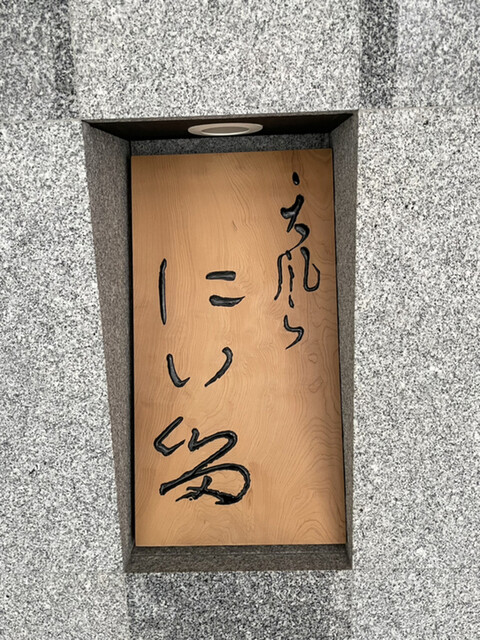 天風ら
にい留